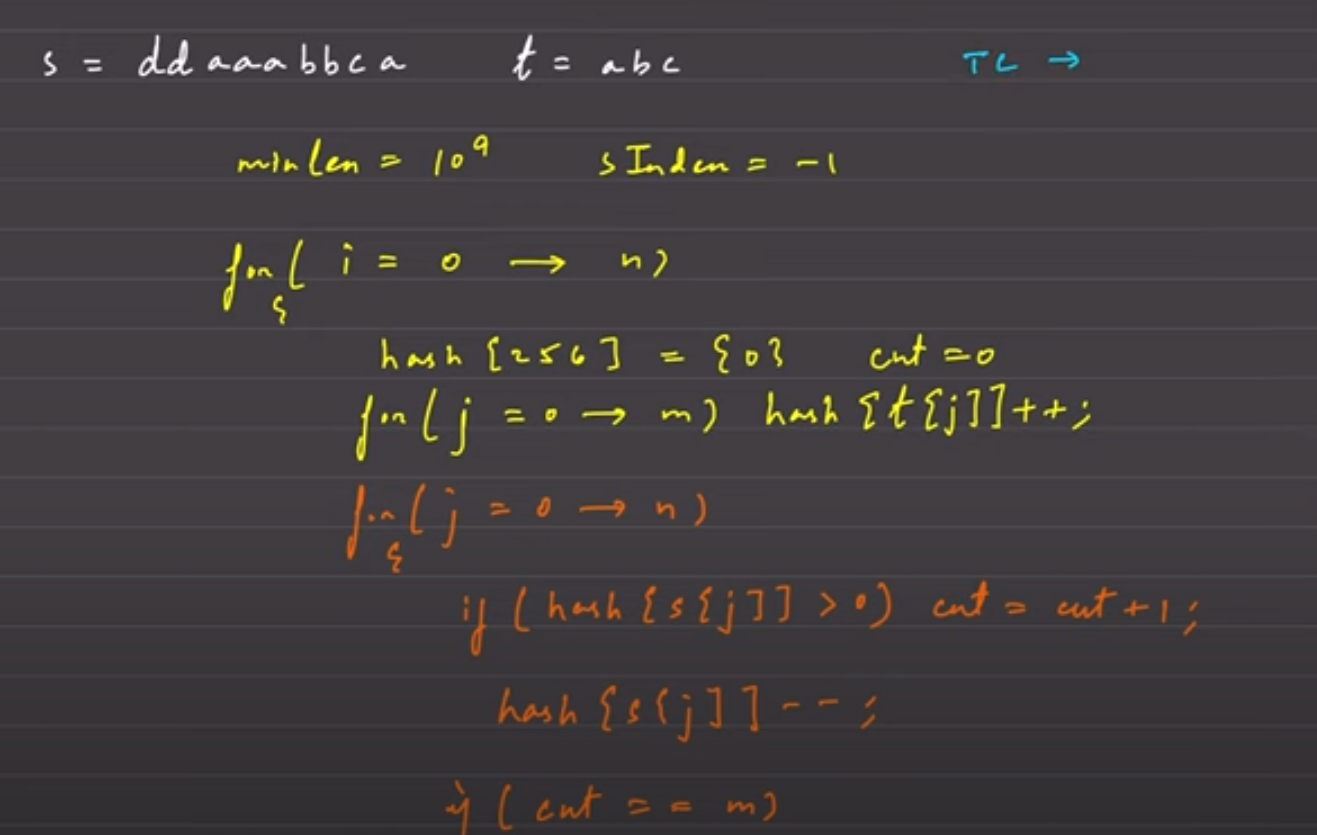 s = ddaaabbca t = abc TC →
minlen = 10^9 sIndex = -1
for( i = 0 → n)
{
hash [256] = {0} cnt = 0
for(j = 0 → m) hash [t[j]]++;
for(j = 0 → n)
{
if (hash [s[j]] > 0) cnt = cnt + 1;
hash [s[j]]--;
if (cnt == m)